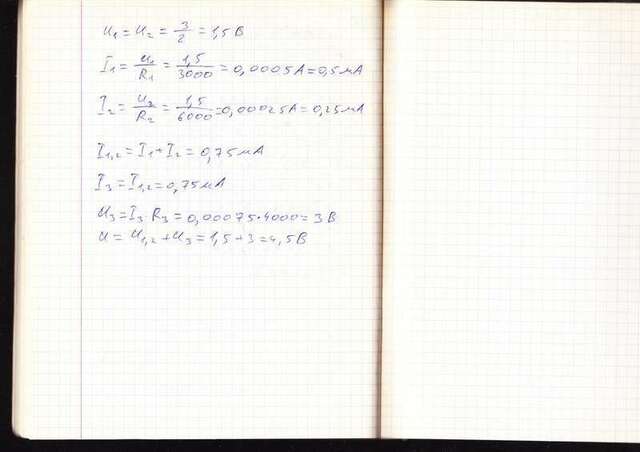 U₁ = U₂ = 3/2 = 1,5 В
I₁ = U₁/R₁ = 1,5/3000 = 0,0005 А = 0,5 мА
I₂ = U₂/R₂ = 1,5/6000 = 0,00025 А = 0,25 мА
I₁,₂ = I₁ + I₂ = 0,75 мА
I₃ = I₁,₂ = 0,75 мА
U₃ = I₃ · R₃ = 0,00075 · 4000 = 3 В
U = U₁,₂ + U₃ = 1,5 + 3 = 4,5 В